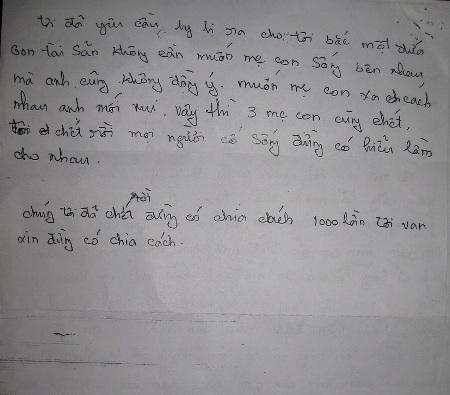 tôi đã yêu cầu ly dị ra cho tôi bắc một đứa
con tài sản không cần muốn mẹ con sống bên nhau
mà anh cũng không đồng ý. muốn mẹ con xa cách
nhau anh mới vui. vậy thì 3 mẹ con cùng chết.
chết rồi mọi người cố sống đừng có hiểu lầm
cho nhau.
rồi
chúng tôi đã chết đừng có chia cách 1000 lần tôi van
xin đừng có chia cách.